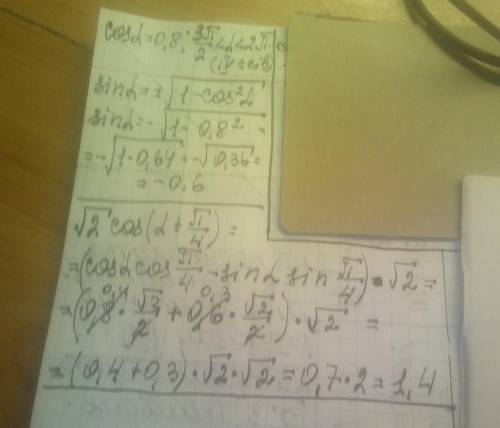 cosα=0,8; 3π/2<α<2π
(IV четв)
sinα=±√1-cos²α
sinα=-√1-0,8² =
=-√1-0,64=-√0,36=
=-0,6
√2 cos(α+π/4)=
=(cosα cos π/4 - sinα sin π/4)·√2=
=(0,8·√2/2+0,6·√2/2)·√2 =
=(0,4+0,3)·√2·√2=0,7·2=1,4